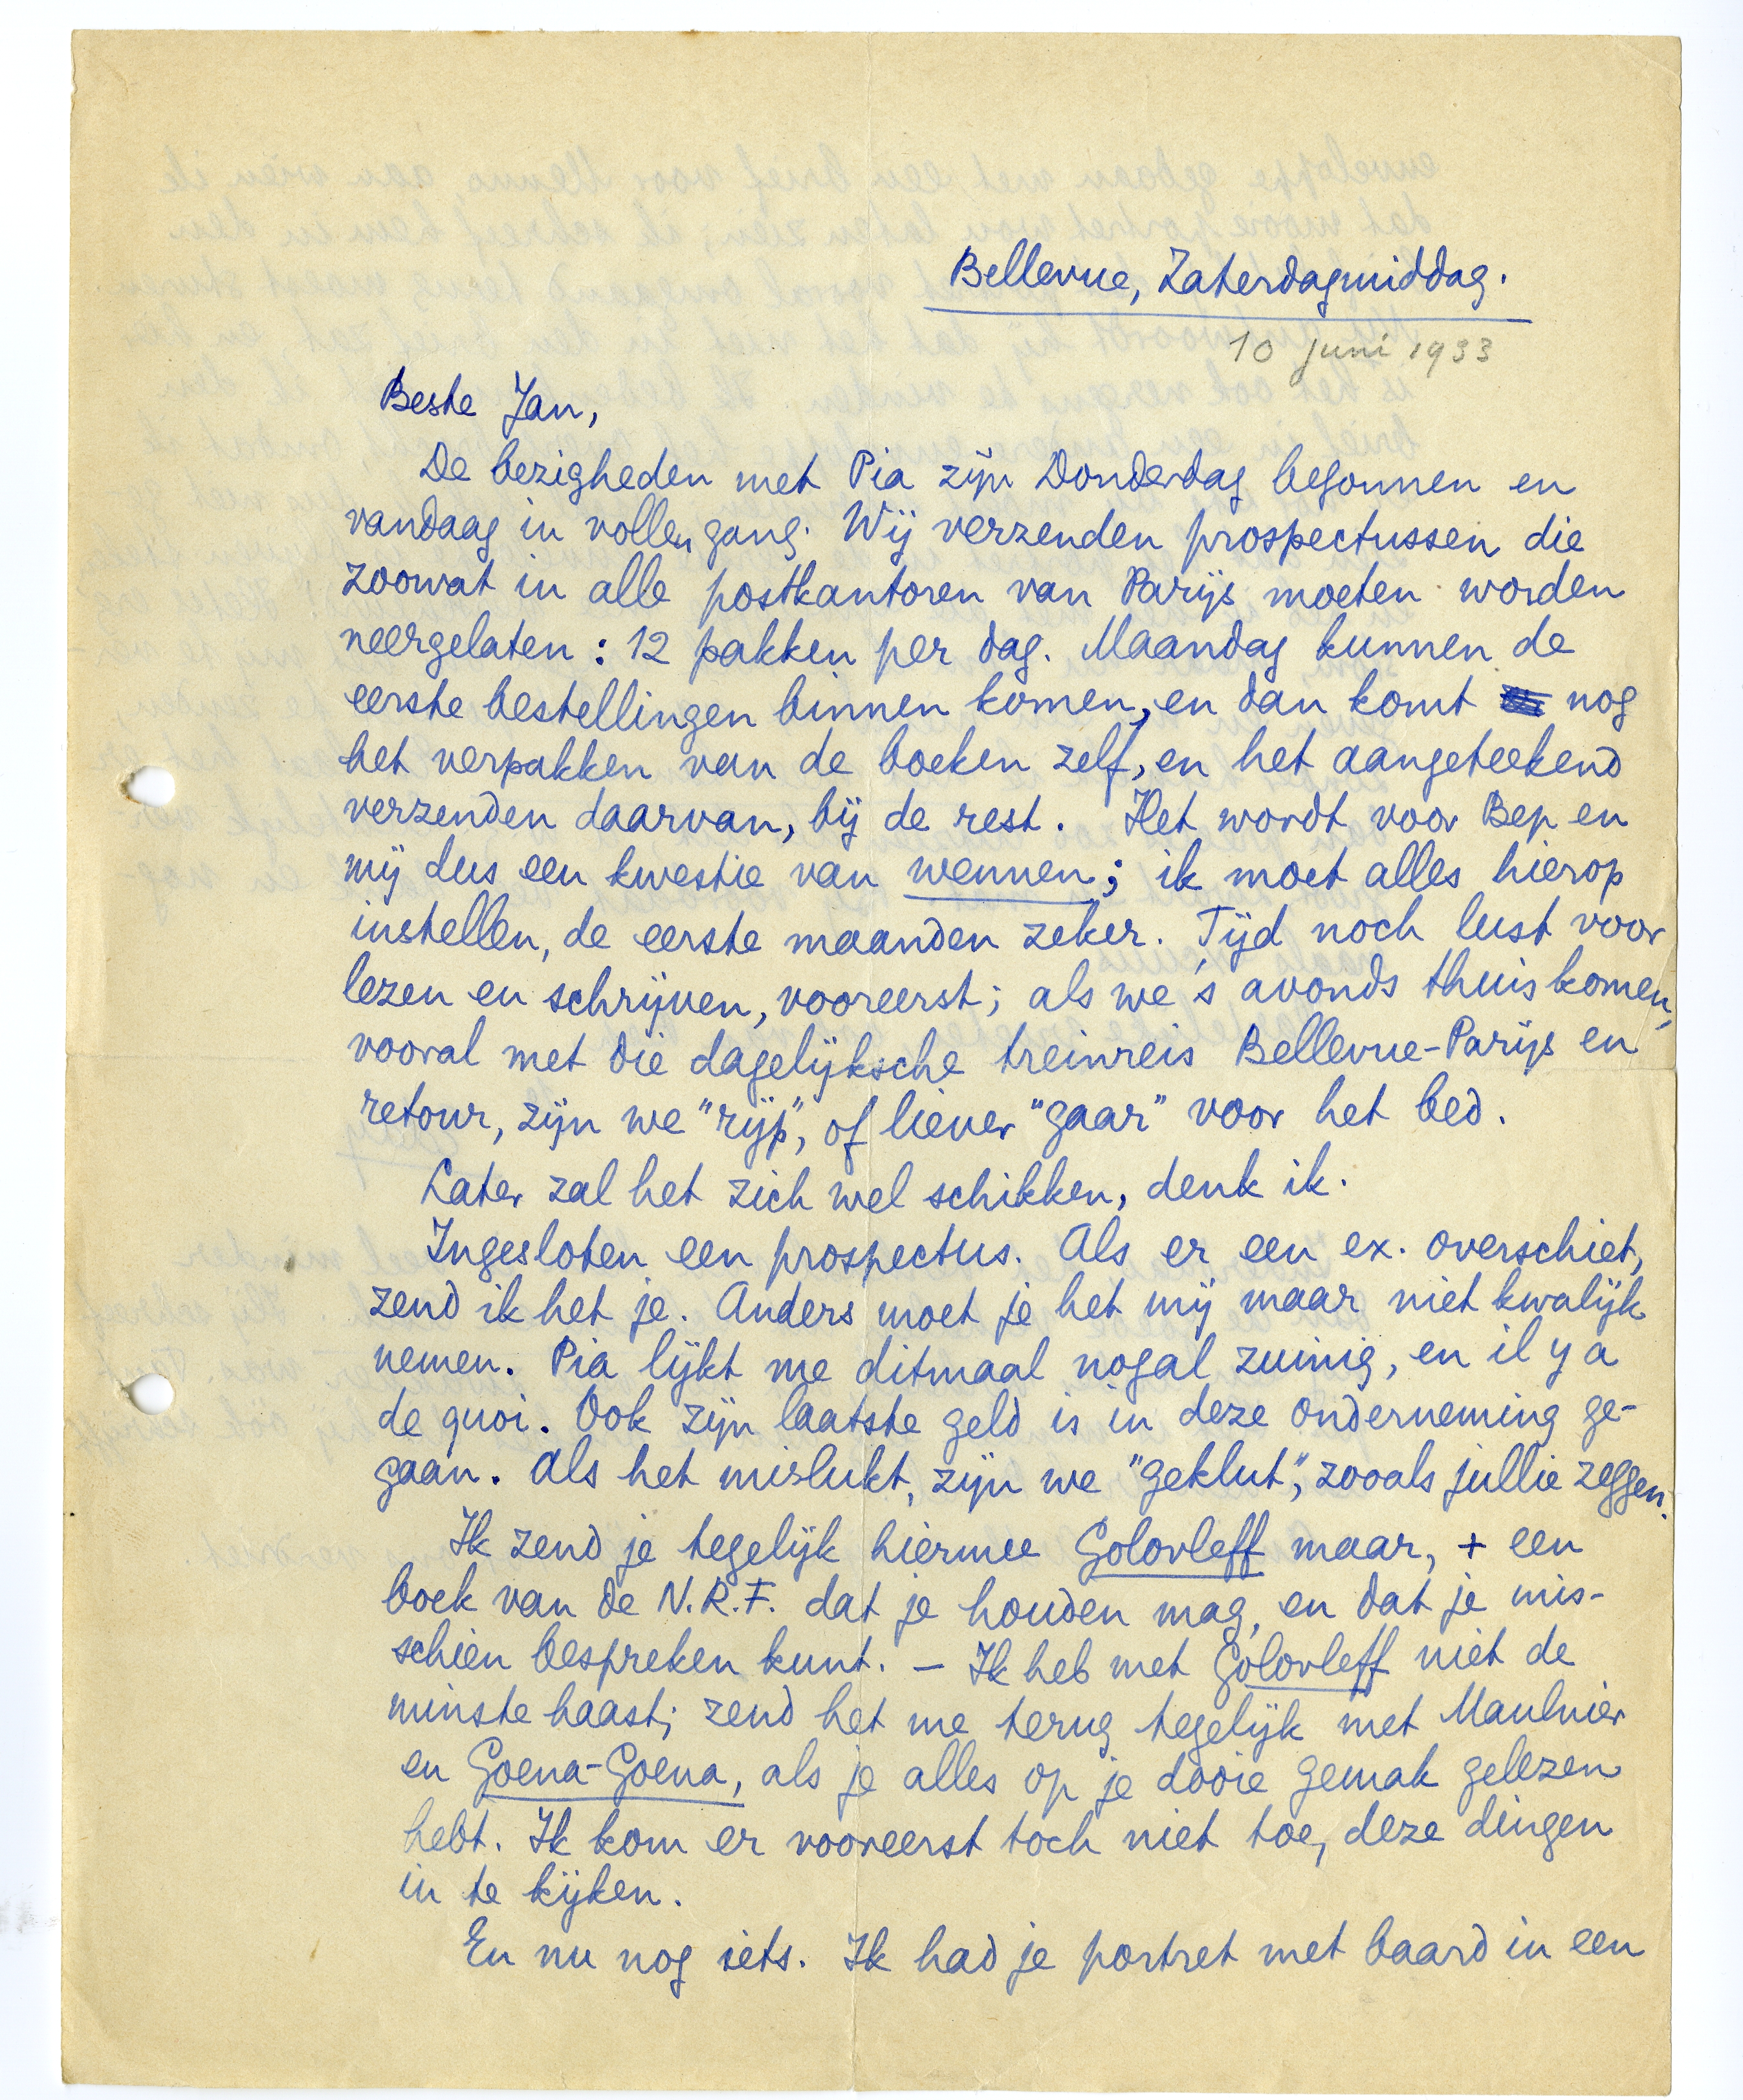 Bellevue, Zaterdagmiddag.
10 juni 1933
Beste Jan,
De bezigheden met Pia zijn Donderdag begonnen en
vandaag in vollen gang. Wij verzenden prospectussen die
zoowat in alle postkantoren van Parijs moeten worden
neergelaten: 12 pakken per dag. Maandag kunnen de
eerste bestellingen binnen komen, en dan komt nog
het verpakken van de boeken zelf, en het aangeteekend
verzenden daarvan, bij de rest. Het wordt voor Bep en
mij dus een kwestie van wennen; ik moet alles hierop
instellen, de eerste maanden zeker. Tijd noch lust voor
lezen en schrijven, vooreerst; als we 's avonds thuiskomen,
vooral met die dagelijksche treinreis Bellevue-Parijs en
retour, zijn we "rijp", of liever "gaar" voor het bed.
Later zal het zich wel schikken, denk ik.
Ingesloten een prospectus. Als er een ex. overschiet,
zend ik het je. Anders moet je het mij maar niet kwalijk
nemen. Pia lijkt me ditmaal nogal zuinig, en il y a
de quoi. Ook zijn laatste geld is in deze onderneming ge-
gaan. Als het mislukt, zijn we "geklut", zooals jullie zeggen.
Ik zend je tegelijk hiermee Golovleff maar, + een
boek van de N.R.F. dat je houden mag, en dat je mis-
schien bespreken kunt. – Ik heb met Golovleff niet de
minste haast; zend het me terug tegelijk met Maulnier
en Goena-Goena, als je alles op je dooie gemak gelezen
hebt. Ik kom er vooreerst toch niet toe, deze dingen
in te kijken.
En nu nog iets. Ik had je portret met baard in een